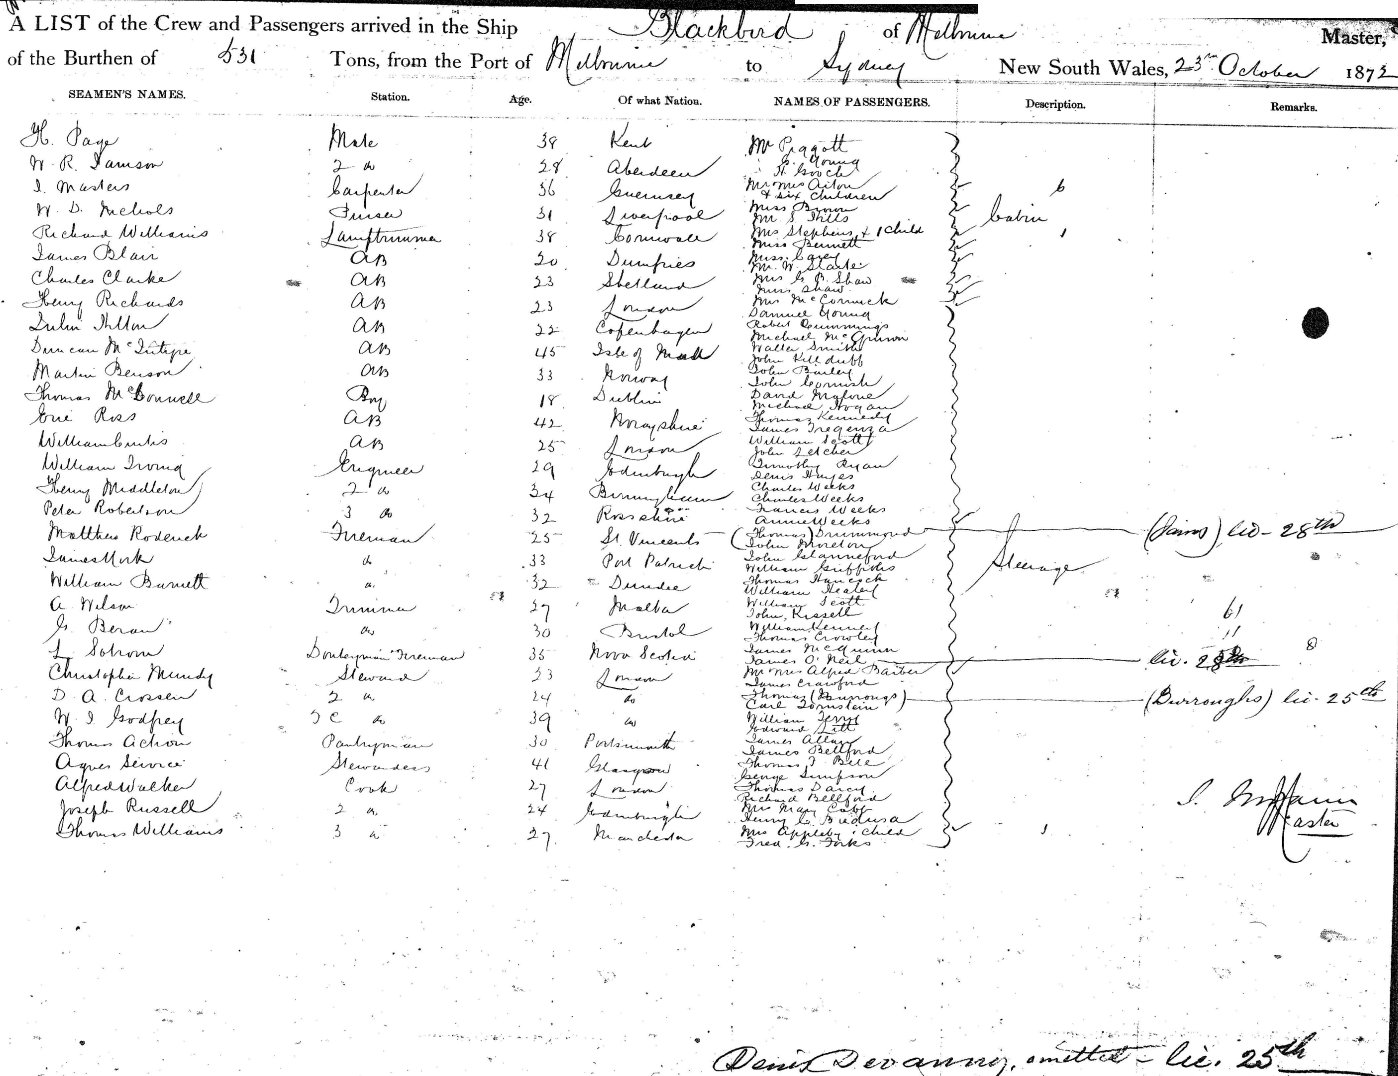 A LIST of the Crew and Passengers arrived in the Ship Blackbird of Melbourne Master,
of the Burthen of 531 Tons, from the Port of Melbourne to Sydney New South Wales, 23rd October 1872
SEAMEN'S NAMES. Station. Age. Of what Nation. NAMES OF PASSENGERS. Description. Remarks.
H. Page Mate 38 Kent Mr Piggott
G. Young
W. R. Jamson 2 do 28 Aberdeen H. Gooch
I. Masters Carpenter 36 Guernsey Mr Mrs Aiton 6
& six children
W. D. Nichols Purser 31 Liverpool Miss Brown Cabin
Mr S. Hills
Richard Williams Lamptrimmer 38 Cornwall Mrs Stephens & 1 child 1
Miss Bennett
James Blair AB 20 Dumfries Miss Carey
Mr W. Starke
Charles Clarke AB 23 Shetland Mrs G. B. Shaw
Miss Shaw
Henry Richards AB 23 London Mrs McCormick
Samuel Young
Hilton AB 22 Copenhagen Robert Cummings
Michael
Duncan McIntyre AB 45 Isle of Mull Walter Smith
John Killduff
Martin Benson AB 33 Norway John Bailey
John Cornish
Thomas McConnell Boy 18 Dublin David Malone
Michael Hogan
Eric Ross AB 42 Morayshire Thomas Kennedy
James Tregenza
William Curtis AB 25 London William Scott
John Letcher
William Irving Engineer 29 Edinburgh Timothy Ryan
Denis Hayes
Henry Middleton 2 do 34 Birmingham Charles Weeks
Charles Weeks
Peter Robertson 3 do 32 Rosshire Francis Weeks
Annie Weeks
Matthew Roderick Fireman 25 St Vincents (Thomas) Drummond (James) lic - 28th
John Moreton
James York do 33 Port Patrick John Glanneford Steerage
William Griffiths
William Burnett do 32 Dundee Thomas Hancock
William Healey
A. Wilson Trimmer 27 Malta William Scott 61
John Kissell
G. Beran do 30 Bristol William Kenney 11
Thomas Crowley
L. Sobrom Donkeyman Fireman 35 Nova Scotia James McQuinn 8
James O'Neil lic. 28th
Christopher Mundy Steward 23 London Mr Mrs Alfred Barber
James Crawford
D. A. Crossen 2 do 24 do Thomas (Burrongs) (Burroughs) lic - 25th
Carl Tornstein
W. J. Godfrey do 39 do William Terry
Edward Litt
Thomas Action Pantryman 30 Portsmouth James Allan
James Bellford
Agnes Service Stewardess 41 Glasgow Thomas J. Bell
George Simpson
Alfred Walker Cook 27 London Thomas Darcy
Richard Bellford
Joseph Russell 2 do 24 Edinburgh Mrs Mary Cobb
Henry C. Bredusa
Thomas Williams 3 do 27 Manchester Mrs Appleby 1 child 1
Fred. G. Forks
Master
Denis Devanny, omitted - lic. 25th